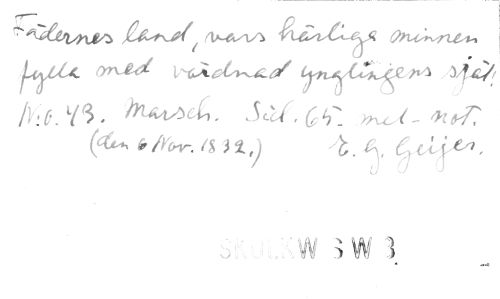 Fädernes land, vars härliga minnen
fylla med vördnad ynglingens själ!
N:o. 43. Marsch. Sid. 65. mel-not.
(den 6 Nov. 1832.) E. G. Geijer.